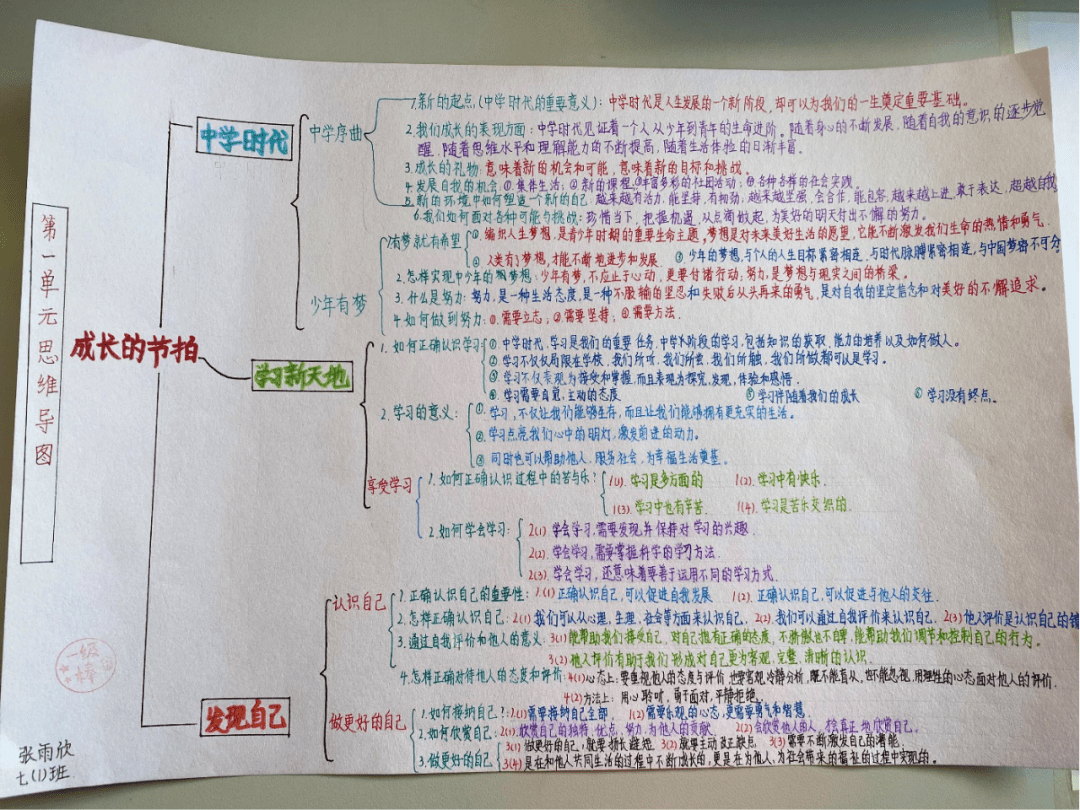 第一单元思维导图
成长的节拍
中学时代
中学序曲
1.新的起点(中学时代的重要意义)：中学时代是人生发展的一个新阶段，却可以为我们的一生奠定重要基础。
2.我们成长的表现方面：中学时代见证着一个人从少年到青年的生命进阶。随着身心的不断发展，随着自我的意识的逐步觉
醒，随着思维水平和理解能力的不断提高，随着生活体验的日渐丰富。
3.成长的礼物：意味着新的机会和可能，意味着新的目标和挑战。
4.发展自我的机会：①.集体生活；②新的课程；③丰富多彩的社团活动；④各种各样的社会实践
5.新的环境中如何塑造一个新的自己：越来越有活力，能坚持，有韧劲，越来越坚强，会合作，能包容，越来越上进，敢于表达，超越自我
6.我们如何面对各种可能与挑战：珍惜当下，把握机遇，从点滴做起，为美好的明天付出不懈的努力。
少年有梦
1.有梦就有希望
①.编织人生梦想，是青少年时期的重要生命主题，梦想是对未来美好生活的愿望，它能不断激发我们生命的热情和勇气
②人类有了梦想，才能不断地进步和发展 ③少年的梦想，与个人的人生目标紧密相连，与时代脉搏紧密相连，与中国梦密不可分
2.怎样实现中少年的梦想：少年有梦，不应止于心动，更要付诸行动；努力，是梦想与现实之间的桥梁。
3.什么是努力：努力，是一种生活态度，是一种不服输的坚忍和失败后从头再来的勇气，是对自我的坚定信念和对美好的不懈追求。
4.如何做到努力：①.需要立志；②需要坚持；③需要方法.
学习新天地
1.如何正确认识学习
①中学时代，学习是我们的重要任务，中学阶段的学习，包括知识的获取，能力的培养以及如何做人。
②学习不仅仅局限在学校，我们所听，我们所做都可以是学习。
③学习不仅表现为接受和掌握，而且表现为探究，发现，体验和感悟.
④.学习需要自觉，主动的态度 ⑤学习伴随着我们的成长 ⑥学习没有终点。
2.学习的意义：
①.学习，不仅让我们能够生存，而且让我们能够拥有更充实的生活。
②.学习点亮我们心中的明灯，激发前进的动力。
③同时也可以帮助他人，服务社会，为幸福生活奠基。
享受学习
1.如何正确认识过程中的苦与乐?
1(1).学习是多方面的 1(2).学习中有快乐.
1(3).学习中也有辛苦. 1(4).学习是苦乐交织的.
2.如何学会学习：
2(1)学会学习，需要发现并保持对学习的兴趣
2(2).学会学习，需要掌握科学的学习方法.
2(3).学会学习，还意味着要善于运用不同的学习方式.
发现自己
认识自己
1.正确认识自己的重要性：1.(1)正确认识自己，可以促进自我发展 1(2).正确认识自己，可以促进与他人的交往.
2.怎样正确认识自己：2(1)我们可以从心理，生理，社会等方面来认识自己. 2(2).我们可以通过自我评价来认识自己. 2(3)他人评价是认识自己的镜
3.通过自我评价和他人的意义：3(1)能帮助我们接受自己，对自己抱有正确的态度，不断傲也不自卑，能帮助我们调节和控制自己的行为.
3(2)他人评价有助于我们形成对自己更为客观，完整，清晰的认识.
4.怎样正确对待他人的态度和评价：4(1)心态上：要重视他人的态度与评价，也要客观冷静分析，既不能盲从，也不能忽视，用理性的心态面对他人的评价.
4(2)方法上：用心聆听，勇于面对，平静拒绝.
做更好的自己
1.如何接纳自己?：1(1)需要接纳自己全部. 1(2)需要乐观的心态，更需要勇气和智慧.
2.如何欣赏自己：2(1)欣赏自己的独特，优点，努力，为他人的贡献. 2(2)会欣赏他人的人，才会真正地欣赏自己.
3.做更好的自己
3(1)做更好的自己，就要扬长避短 3(2)就要主动改正缺点 3(3)需要不断激发自己的潜能.
3(4)是在和他人共同生活的过程中不断成长的，更是在为他人，为社会带来的福祉的过程中实现的。
一级
棒
张雨欣
七(1)班.